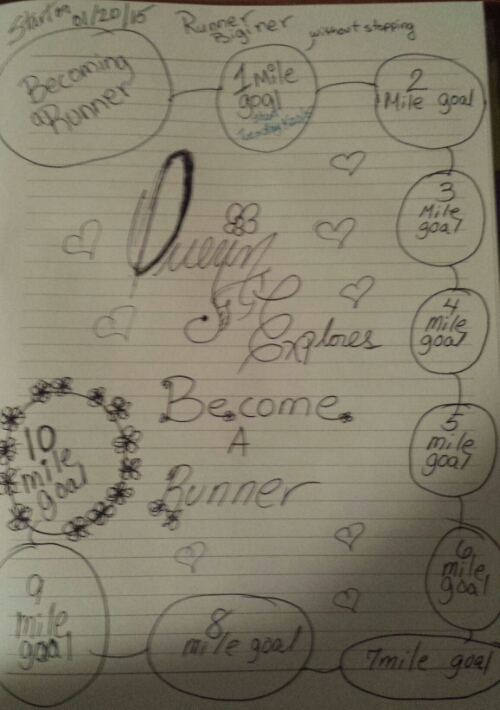 Start on 01/20/15
Runner
Biginer
without stopping
Becoming
a Runner
1 Mile
goal
2
Mile goal
3
Mile
goal
4
mile
goal
5
mile
goal
6
mile
goal
7 mile goal
8
mile goal
9
mile
goal
10
mile
goal
Explores
Become
A
Runner